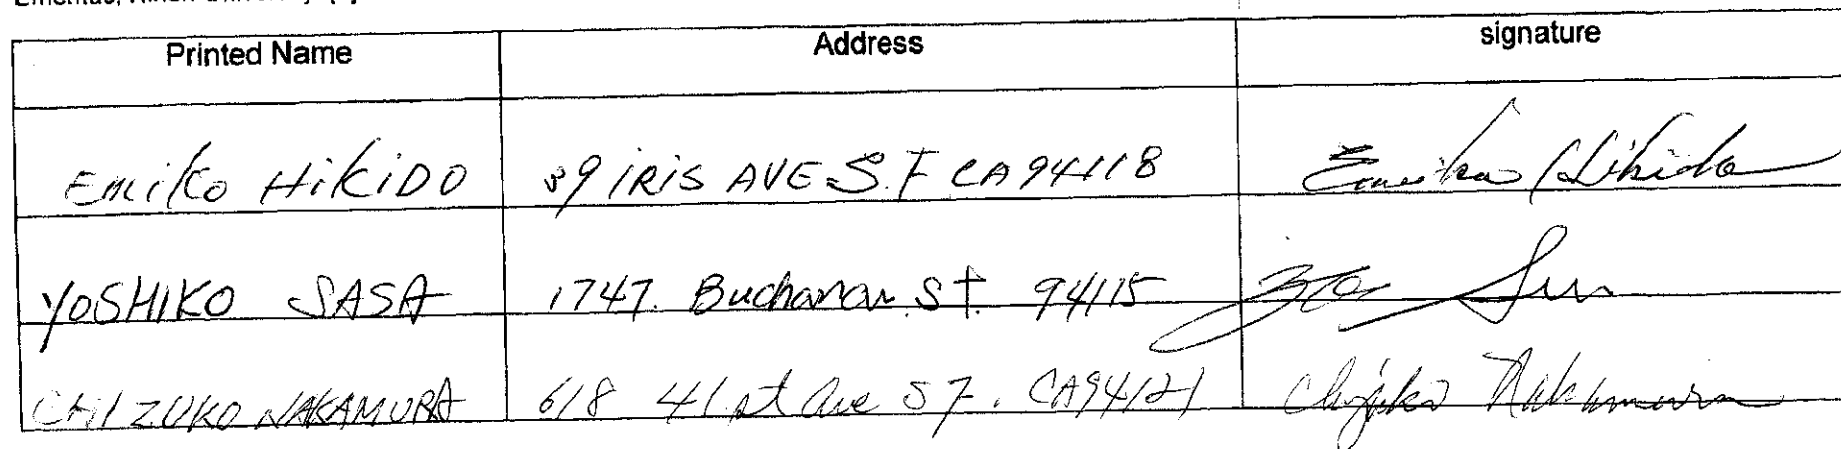 Printed Name Address signature
Emiko HikiDO 39 IRIS AVE S.F CA 94118 Emiko Hikido
YOSHIKO SASA 1747. Buchanan St. 94115
CHIZUKO NAKAMURA 618 41st Ave S F. CA94121 Chizuko Nakamura